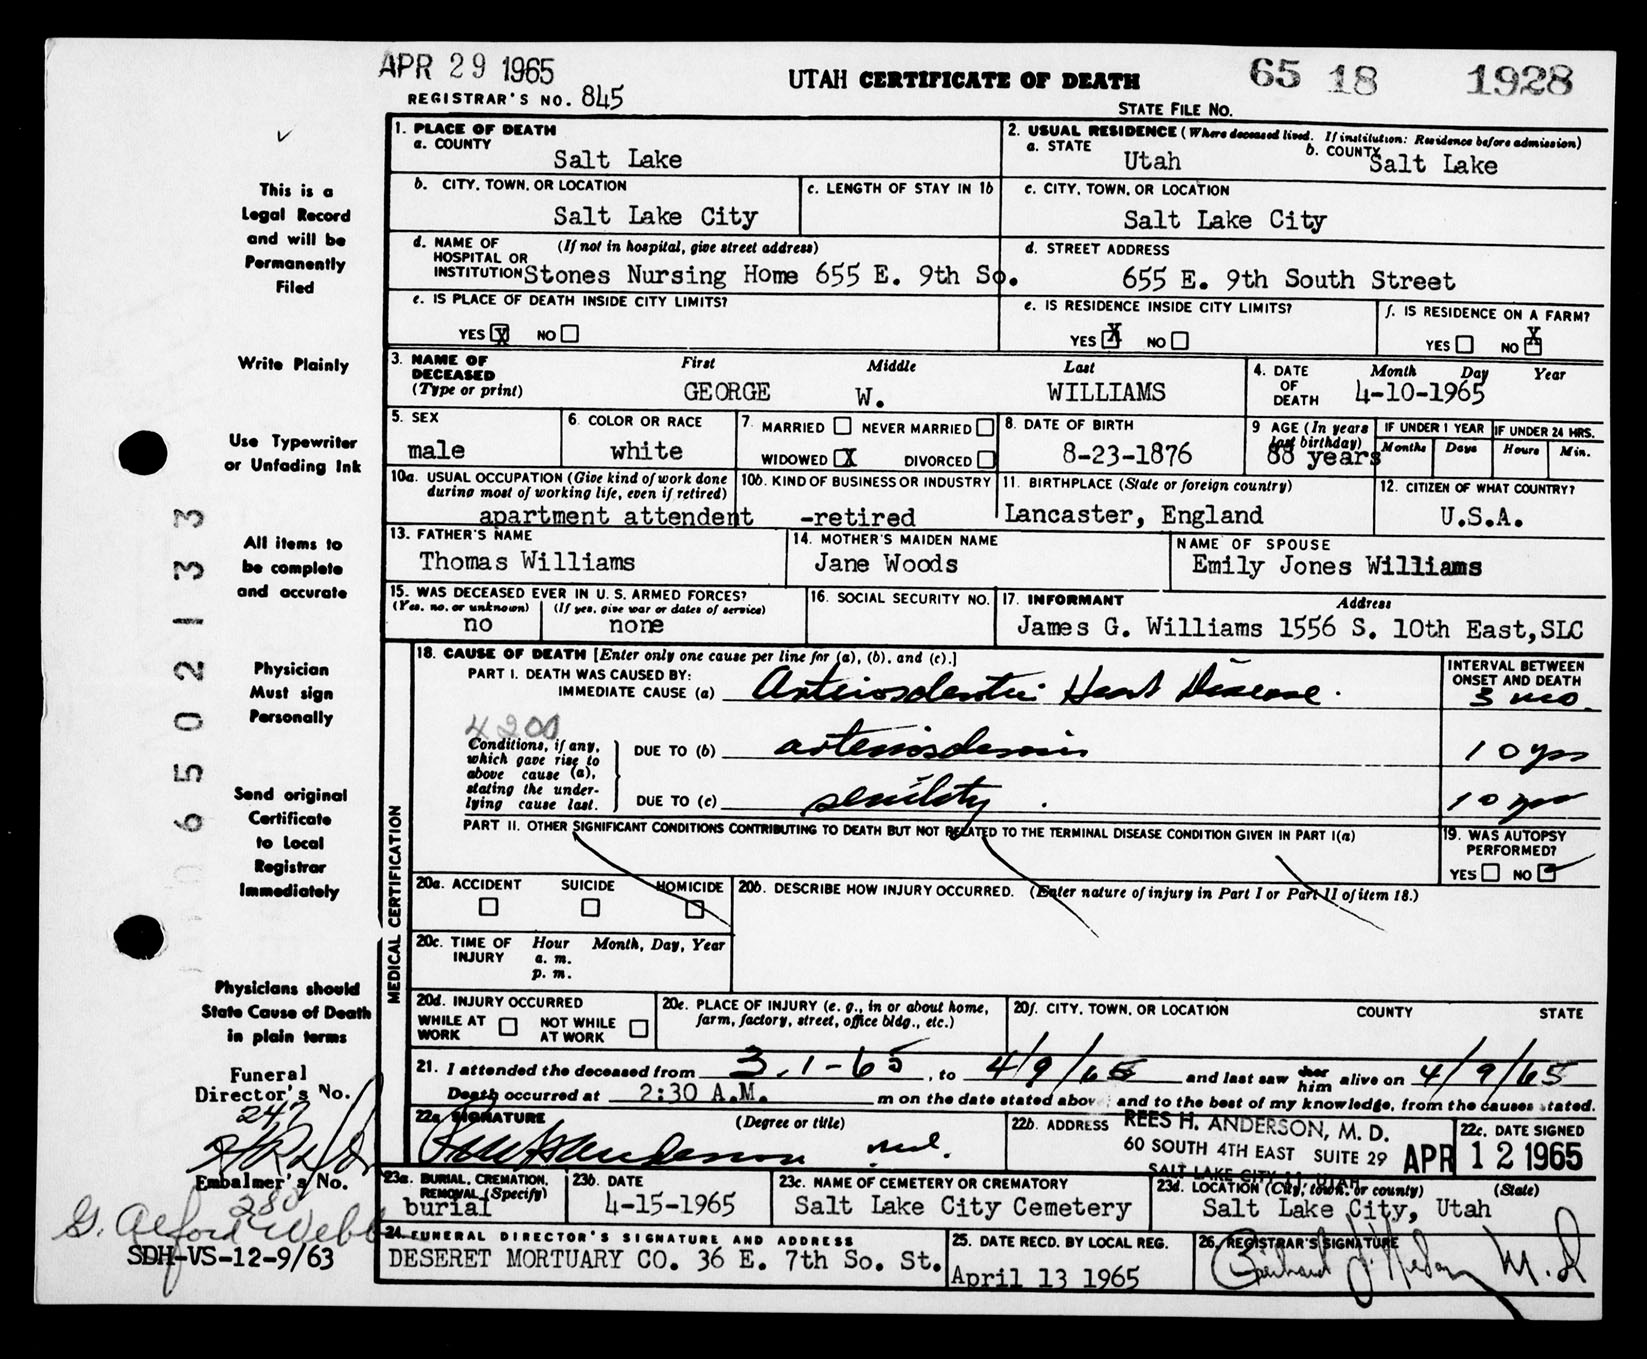 APR 29 1965
REGISTRAR'S NO. 845
UTAH CERTIFICATE OF DEATH
65 18 1928
STATE FILE NO.
This is a
Legal Record
and will be
Permanently
Filed
Write Plainly
Use Typewriter
or Unfading Ink
All items to
be complete
and accurate
Physician
Must sign
Personally
Send original
Certificate
to Local
Registrar
Immediately
Physicians should
State Cause of Death
in plain terms
Funeral
Director's No.
247
Embalmer's No.
280
G. Alford Webb
SDH-VS-12-9/63
06502133
1. PLACE OF DEATH
a. COUNTY
Salt Lake
2. USUAL RESIDENCE (Where deceased lived. If institution: Residence before admission)
a. STATE Utah b. COUNTY Salt Lake
b. CITY, TOWN, OR LOCATION
Salt Lake City
c. LENGTH OF STAY IN 1b
c. CITY, TOWN, OR LOCATION
Salt Lake City
d. NAME OF (If not in hospital, give street address)
HOSPITAL OR
INSTITUTION Stones Nursing Home 655 E. 9th So.
d. STREET ADDRESS
655 E. 9th South Street
e. IS PLACE OF DEATH INSIDE CITY LIMITS?
YES X NO
e. IS RESIDENCE INSIDE CITY LIMITS?
YES X NO
f. IS RESIDENCE ON A FARM?
YES NO X
3. NAME OF
DECEASED
(Type or print)
First Middle Last
GEORGE W. WILLIAMS
4. DATE
OF
DEATH
Month Day Year
4-10-1965
5. SEX
male
6. COLOR OR RACE
white
7. MARRIED NEVER MARRIED
WIDOWED X DIVORCED
8. DATE OF BIRTH
8-23-1876
9 AGE (In years
last birthday)
88 years
IF UNDER 1 YEAR
Months Days
IF UNDER 24 HRS.
Hours Min.
10a. USUAL OCCUPATION (Give kind of work done
during most of working life, even if retired)
apartment attendent -retired
10b. KIND OF BUSINESS OR INDUSTRY
11. BIRTHPLACE (State or foreign country)
Lancaster, England
12. CITIZEN OF WHAT COUNTRY?
U.S.A.
13. FATHER'S NAME
Thomas Williams
14. MOTHER'S MAIDEN NAME
Jane Woods
NAME OF SPOUSE
Emily Jones Williams
15. WAS DECEASED EVER IN U.S. ARMED FORCES?
(Yes, no, or unknown) (If yes, give war or dates of service)
no none
16. SOCIAL SECURITY NO.
17. INFORMANT Address
James G. Williams 1556 S. 10th East,SLC
MEDICAL CERTIFICATION
18. CAUSE OF DEATH [Enter only one cause per line for (a), (b), and (c).]
PART I. DEATH WAS CAUSED BY:
IMMEDIATE CAUSE (a) Arteriosclerotic Heart Disease.
INTERVAL BETWEEN
ONSET AND DEATH
3 mo.
4200
Conditions, if any,
which gave rise to
above cause (a),
stating the under-
lying cause last.
DUE TO (b) arteriosclerosis 10 yrs
DUE TO (c) senility . 10 yrs
PART II. OTHER SIGNIFICANT CONDITIONS CONTRIBUTING TO DEATH BUT NOT RELATED TO THE TERMINAL DISEASE CONDITION GIVEN IN PART I(a)
19. WAS AUTOPSY
PERFORMED?
YES NO
20a. ACCIDENT SUICIDE HOMICIDE
20b. DESCRIBE HOW INJURY OCCURRED. (Enter nature of injury in Part I or Part II of item 18.)
20c. TIME OF Hour Month, Day, Year
INJURY a. m.
p. m.
20d. INJURY OCCURRED
WHILE AT NOT WHILE
WORK AT WORK
20e. PLACE OF INJURY (e. g., in or about home,
farm, factory, street, office bldg., etc.)
20f. CITY, TOWN, OR LOCATION COUNTY STATE
21. I attended the deceased from 3.1-65, to 4/9/65 and last saw her him alive on 4/9/65
Death occurred at 2:30 A.M. m on the date stated above; and to the best of my knowledge, from the causes stated.
22a SIGNATURE (Degree or title)
Rees H Anderson md.
22b. ADDRESS REES H. ANDERSON, M. D.
60 SOUTH 4TH EAST SUITE 29
SALT LAKE CITY 11, UTAH
22c. DATE SIGNED
APR 12 1965
23a. BURIAL, CREMATION,
REMOVAL (Specify)
burial
23b. DATE
4-15-1965
23c. NAME OF CEMETERY OR CREMATORY
Salt Lake City Cemetery
23d. LOCATION (City, town, or county) (State)
Salt Lake City, Utah
24. FUNERAL DIRECTOR'S SIGNATURE AND ADDRESS
DESERET MORTUARY CO. 36 E. 7th So. St.
25. DATE RECD. BY LOCAL REG.
April 13 1965
26. REGISTRAR'S SIGNATURE
M.D